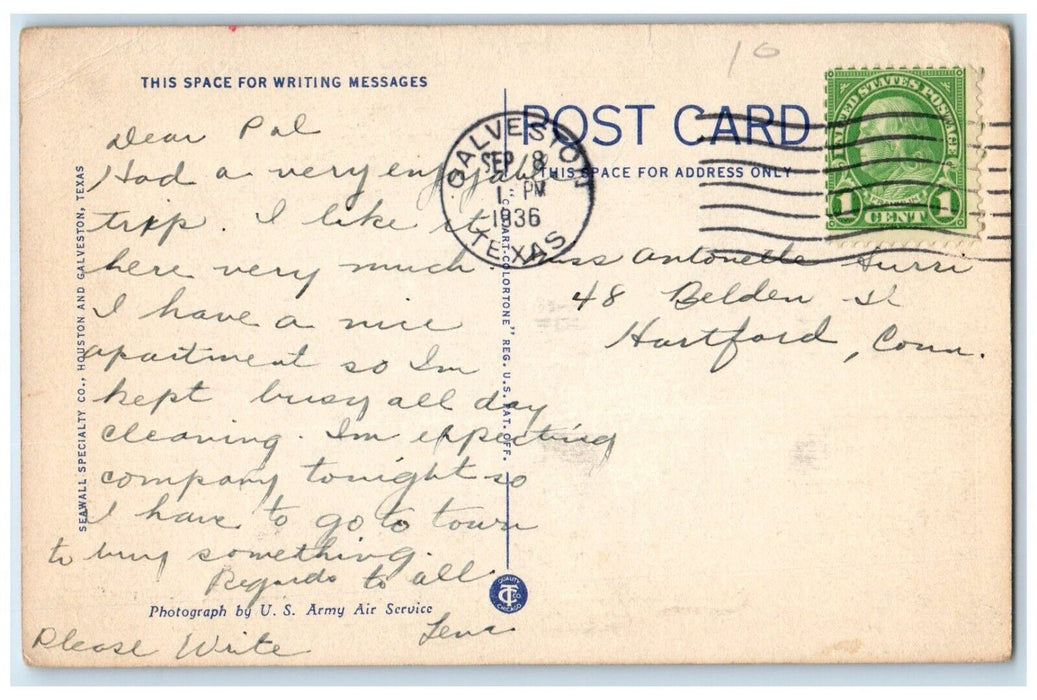 10
THIS SPACE FOR WRITING MESSAGES
POST CARD
THIS SPACE FOR ADDRESS ONLY
UNITED STATES POSTAGE
1 CENT 1
GALVESTON
SEP 8
1 PM
1936
TEXAS
Dear Pal
Had a very enjyable
trip. I like it
here very much.
I have a nice
apartment so Im
kept busy all day
cleaning. Im expecting
company tonight so
I have to go to town
to buy something.
Regards to all.
Lena
Please Write
Miss Antonette
48 Belden St
Hartford, Conn.
SEAWALL SPECIALTY CO., HOUSTON AND GALVESTON, TEXAS
"C.T. ART-COLORTONE" REG. U.S. PAT. OFF.
QUALITY
CT CO
CHICAGO
Photograph by U. S. Army Air Service